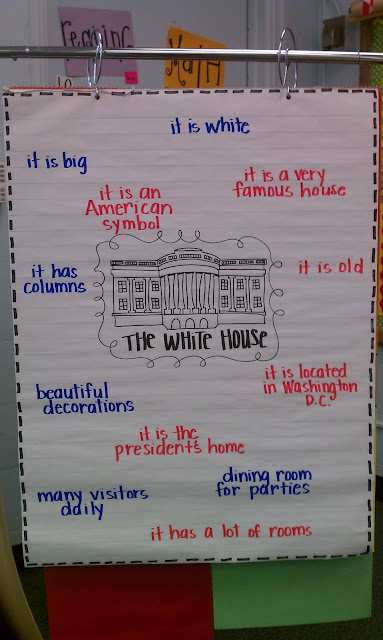 reading
Math
it is white
it is big
it is a very
famous house
it is an
American
symbol
it has
columns
it is old
THE WHITE HOUSE
it is located
in Washington
D.C.
beautiful
decorations
it is the
presidents home
dining room
for parties
many visitors
daily
it has a lot of rooms